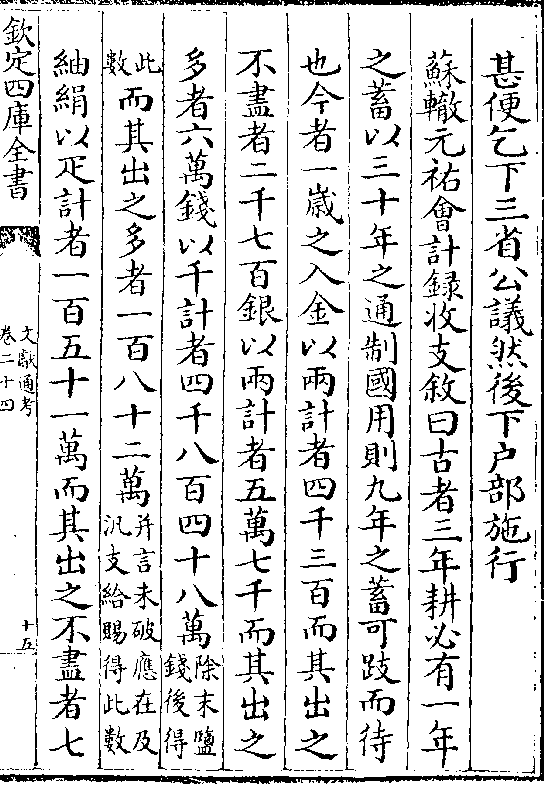 甚便乞下三省公議然後下户部施行
蘇轍元祐會計録收支敘曰古者三年耕必有一年
之蓄以三十年之通制國用則九年之蓄可跂而待
也今者一歳之入金以兩計者四千三百而其出之
不盡者二千七百銀以兩計者五萬七千而其出之
多者六萬錢以千計者四千八百四十八萬除末鹽
錢後得
此
數而其出之多者一百八十二萬并言未破應在及
汎支給賜得此數
紬絹以疋計者一百五十一萬而其出之不盡者七
欽定四庫全書
文獻通考
卷二十四
十五